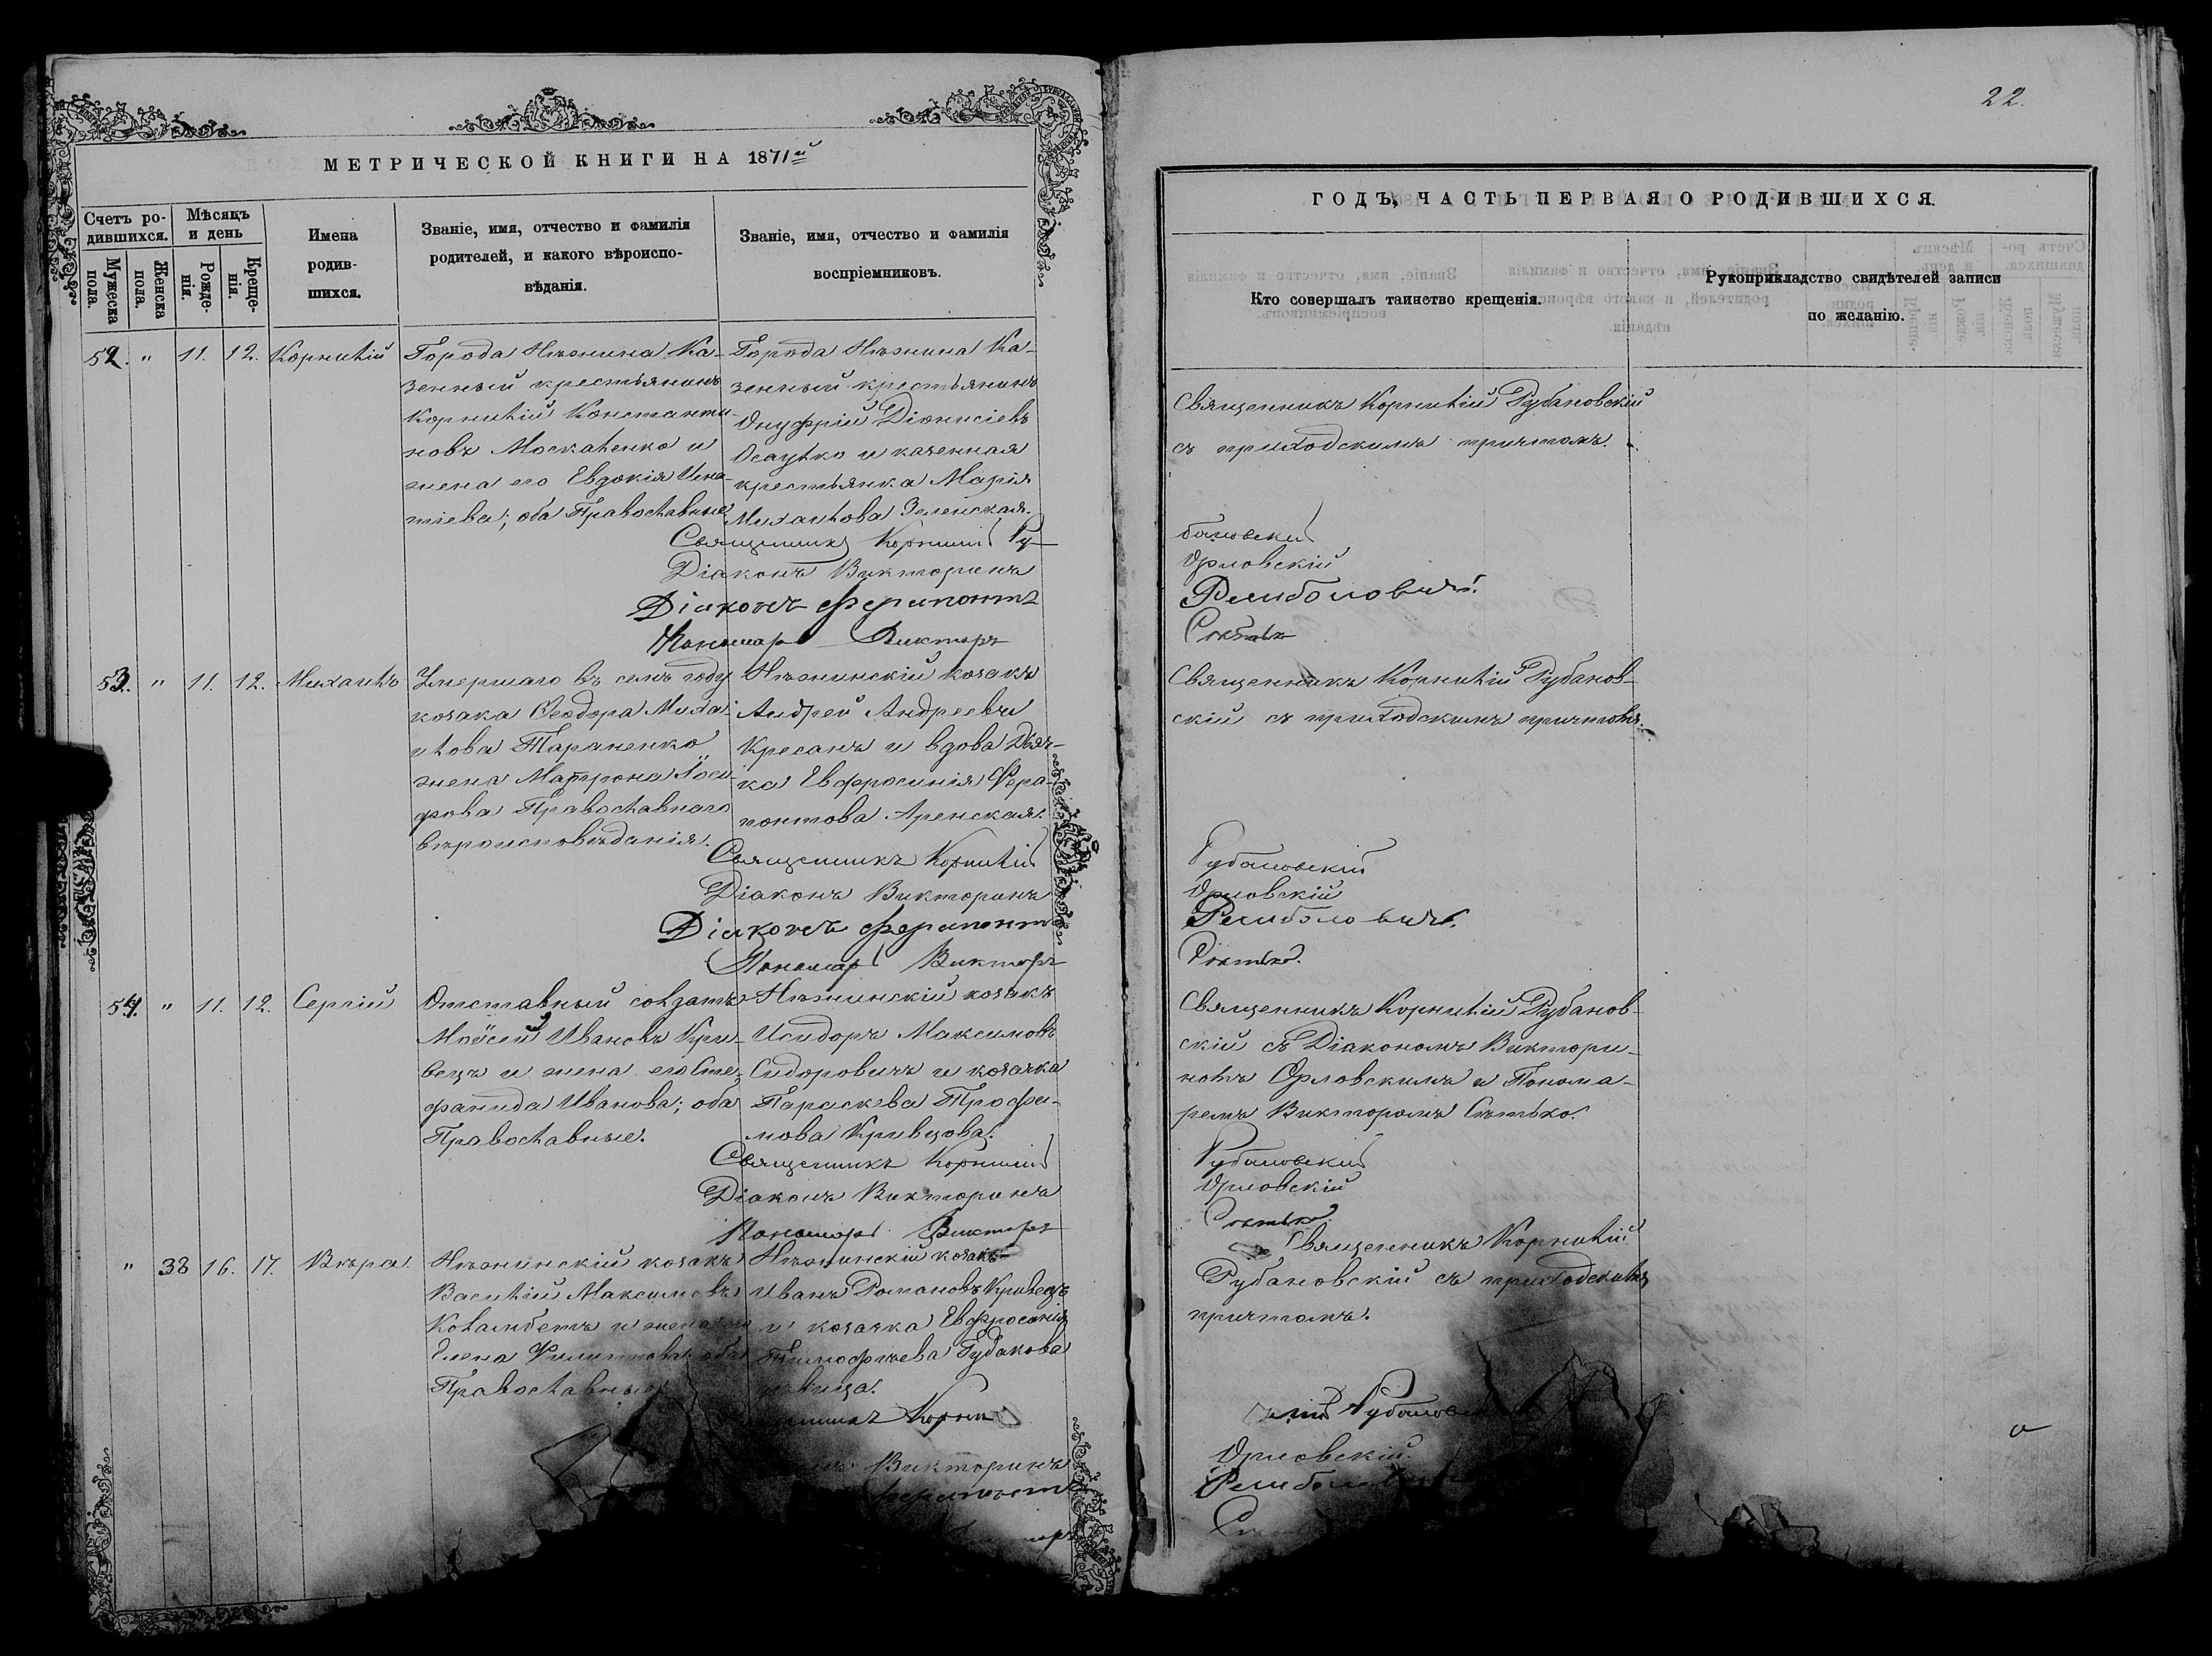 МЕТРИЧЕСКОЙ КНИГИ НА 1871й
Счетъ ро-
дившихся.
Мѣсяцъ
и день
Мужеска
пола.
Женска
пола.
Рожде-
нія.
Креще-
нія.
Имена
родив-
шихся.
Званіе, имя, отчество и фамилія
родителей, и какого вѣроиспо-
вѣданія.
Званіе, имя, отчество и фамилія
воспріемниковъ.
52. " 11. 12. Корнилій
Города Нѣжина Ка-
зенный крестьянинъ
Корнилій Константи-
новъ Москаленко и
жена его Евдокія Игна-
тіева; оба Православные
Города Нѣжина Ка-
зенный крестьянинъ
Онуфрій Діонисіевъ
Осаулко и казенная
крестьянка Марія
Михаилова Зеленская.
Священникъ Корнилій Ру-
Діаконъ Викторинъ
Діаконъ Ферапонтъ
Пономарь Викторъ
53. " 11. 12. Михаилъ
Умершаго въ семъ году
козака Ѳеодора Миха-
илова Тараненко
жена Матрона Іоси-
фова Православнаго
вѣроисповѣданія.
Нѣжинскій козакъ
Андрей Андреевъ
Кресанъ и вдова Дья-
ка Евфросинія Фера-
понтова Аренская.
Священникъ Корнилій
Діаконъ Викторинъ
Діаконъ Ферапонтъ
Пономарь Викторъ
54. " 11. 12. Сергій
Отставный солдатъ
Моѵсей Ивановъ Кри-
вецъ и жена его Сте-
фанида Иванова; оба
Православные.
Нѣжинскій козакъ
Исидоръ Максимовъ
Сидоровичъ и козачка
Параскева Трофи-
мова Кривцова.
Священникъ Корнилій
Діаконъ Викторинъ
Пономарь Викторъ
" 38 16. 17. Вѣра.
Нѣжинскій козакъ
Василій Максимовъ
и жена
Елена Филиппова; оба
Православные
Нѣжинскій козакъ
Иванъ Романовъ Кривецъ
и козачка Евфросинія
Тимофѣева Рудакова
дѣвица.
Корни
Викторинъ
Ферапонтъ
22.
ГОДЪ, ЧАСТЬ ПЕРВАЯ О РОДИВШИХСЯ.
Кто совершалъ таинство крещенія.
Рукоприкладство свидѣтелей записи
по желанію.
Священникъ Корнилій Рубановскій
съ приходскимъ причтомъ.
бановскій
Орловскій
Ремболовичъ.
Священникъ Корнилій Рубанов-
скій съ приходскимъ причтомъ.
Рубановскій
Орловскій
Ремболовичъ.
Священникъ Корнилій Рубанов-
скій съ Діакономъ Виктори-
номъ Орловскимъ и Понома-
ремъ Викторомъ Сѣтько.
Рубановскій
Орловскій
Священникъ Корнилій
Рубановскій съ приходскимъ
причтомъ.
лій Рубановскій
Орловскій.